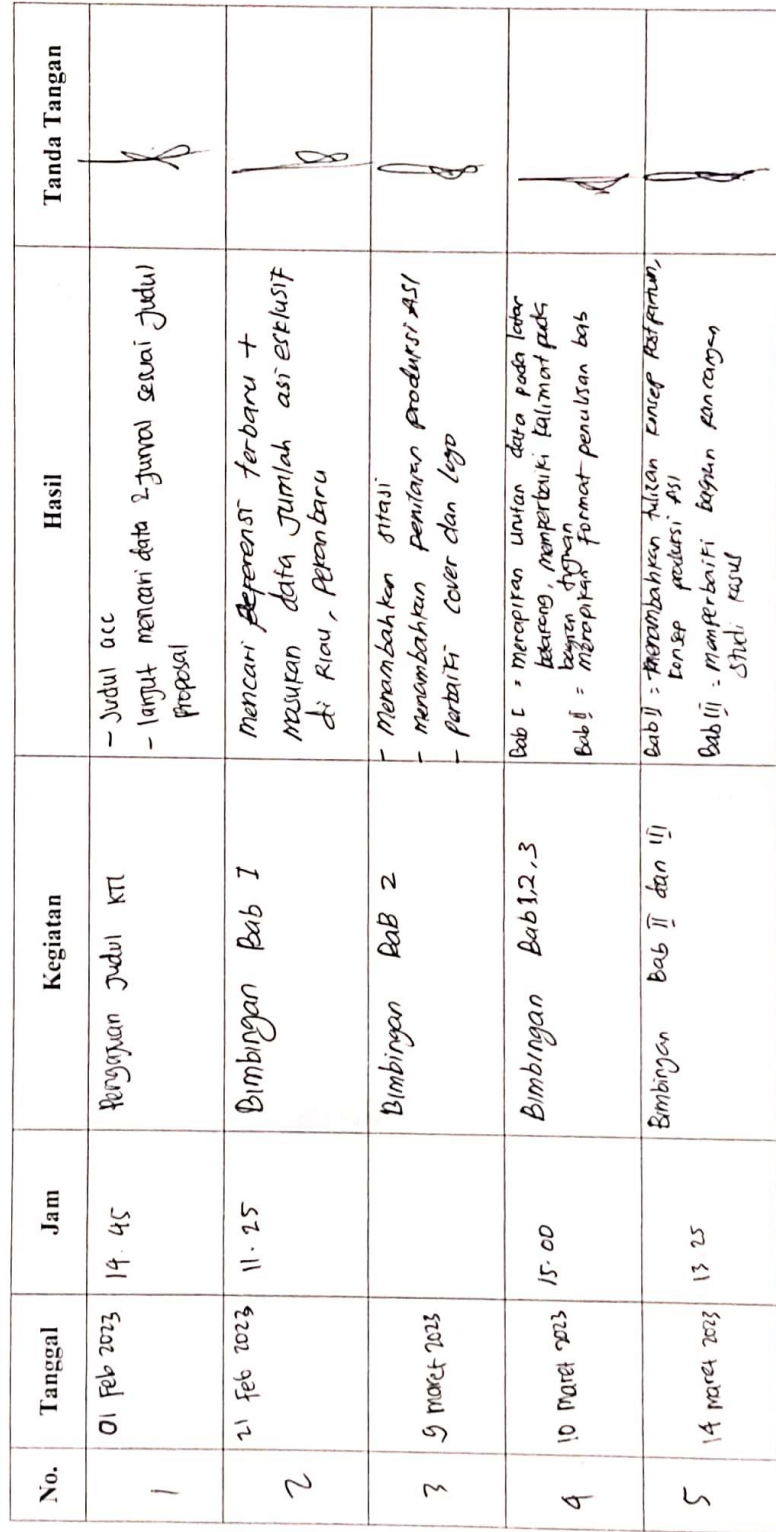 No. Tanggal Jam Kegiatan Hasil Tanda Tangan
1 01 Feb 2023 14.45 Pengajuan Judul KTI
- Judul acc
- lanjut mencari data 2 Jurnal sesuai Judul
proposal
2 21 Feb 2023 11.25 Bimbingan Bab I
mencari Referensi terbaru +
masukan data Jumlah asi esklusif
di Riau, Pekanbaru
3 9 maret 2023 Bimbingan BaB 2
- Menambahkan sitasi
- menambahkan penilaian produksi ASI
- perbaiki cover dan logo
4 10 maret 2023 15.00 Bimbingan Bab 1,2,3
Bab I = merapikan urutan data pada latar
belakang, memperbaiki kalimat pada
bagian tujuan
Bab II = merapikan format penulisan bab
5 14 maret 2023 13.25 Bimbingan Bab II dan III
Bab II = menambahkan tulisan konsep Postpartum,
konsep produksi ASI
Bab III = memperbaiki bagian Rancangan
Studi kasus